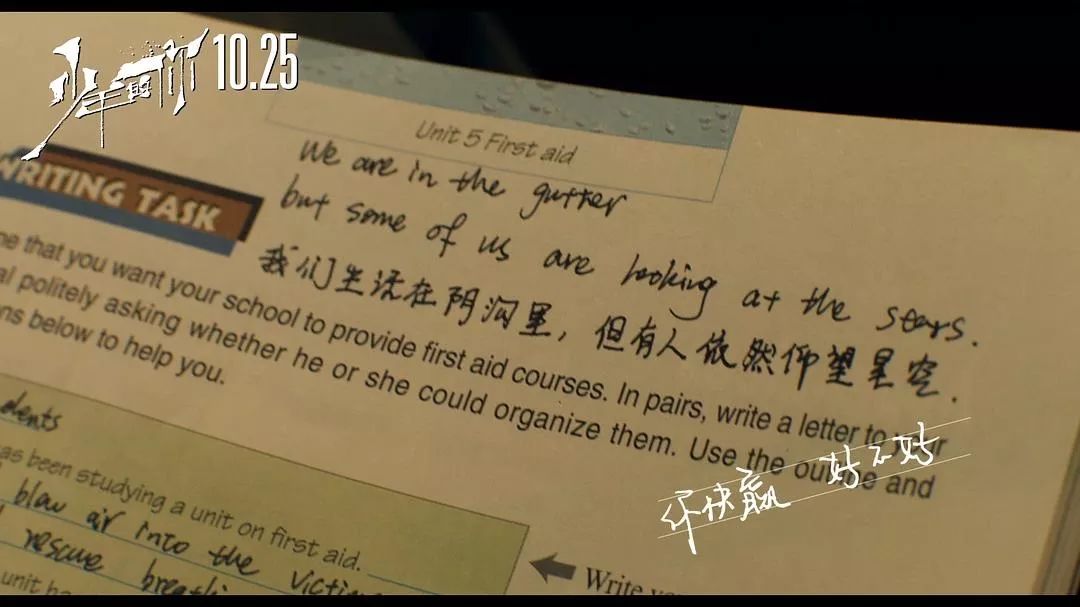 少年的你 10.25
Unit 5 First aid
We are in the gutter
but some of us are looking at the stars.
我们生活在阴沟里，但有人依然仰望星空.
WRITING TASK
ne that you want your school to provide first aid courses. In pairs, write a letter to your
al politely asking whether he or she could organize them. Use the outline and
ns below to help you.
dents
as been studying a unit on first aid.
blow air into the victim
rescue breathi
unit ha
Write yo
你快赢 好不好